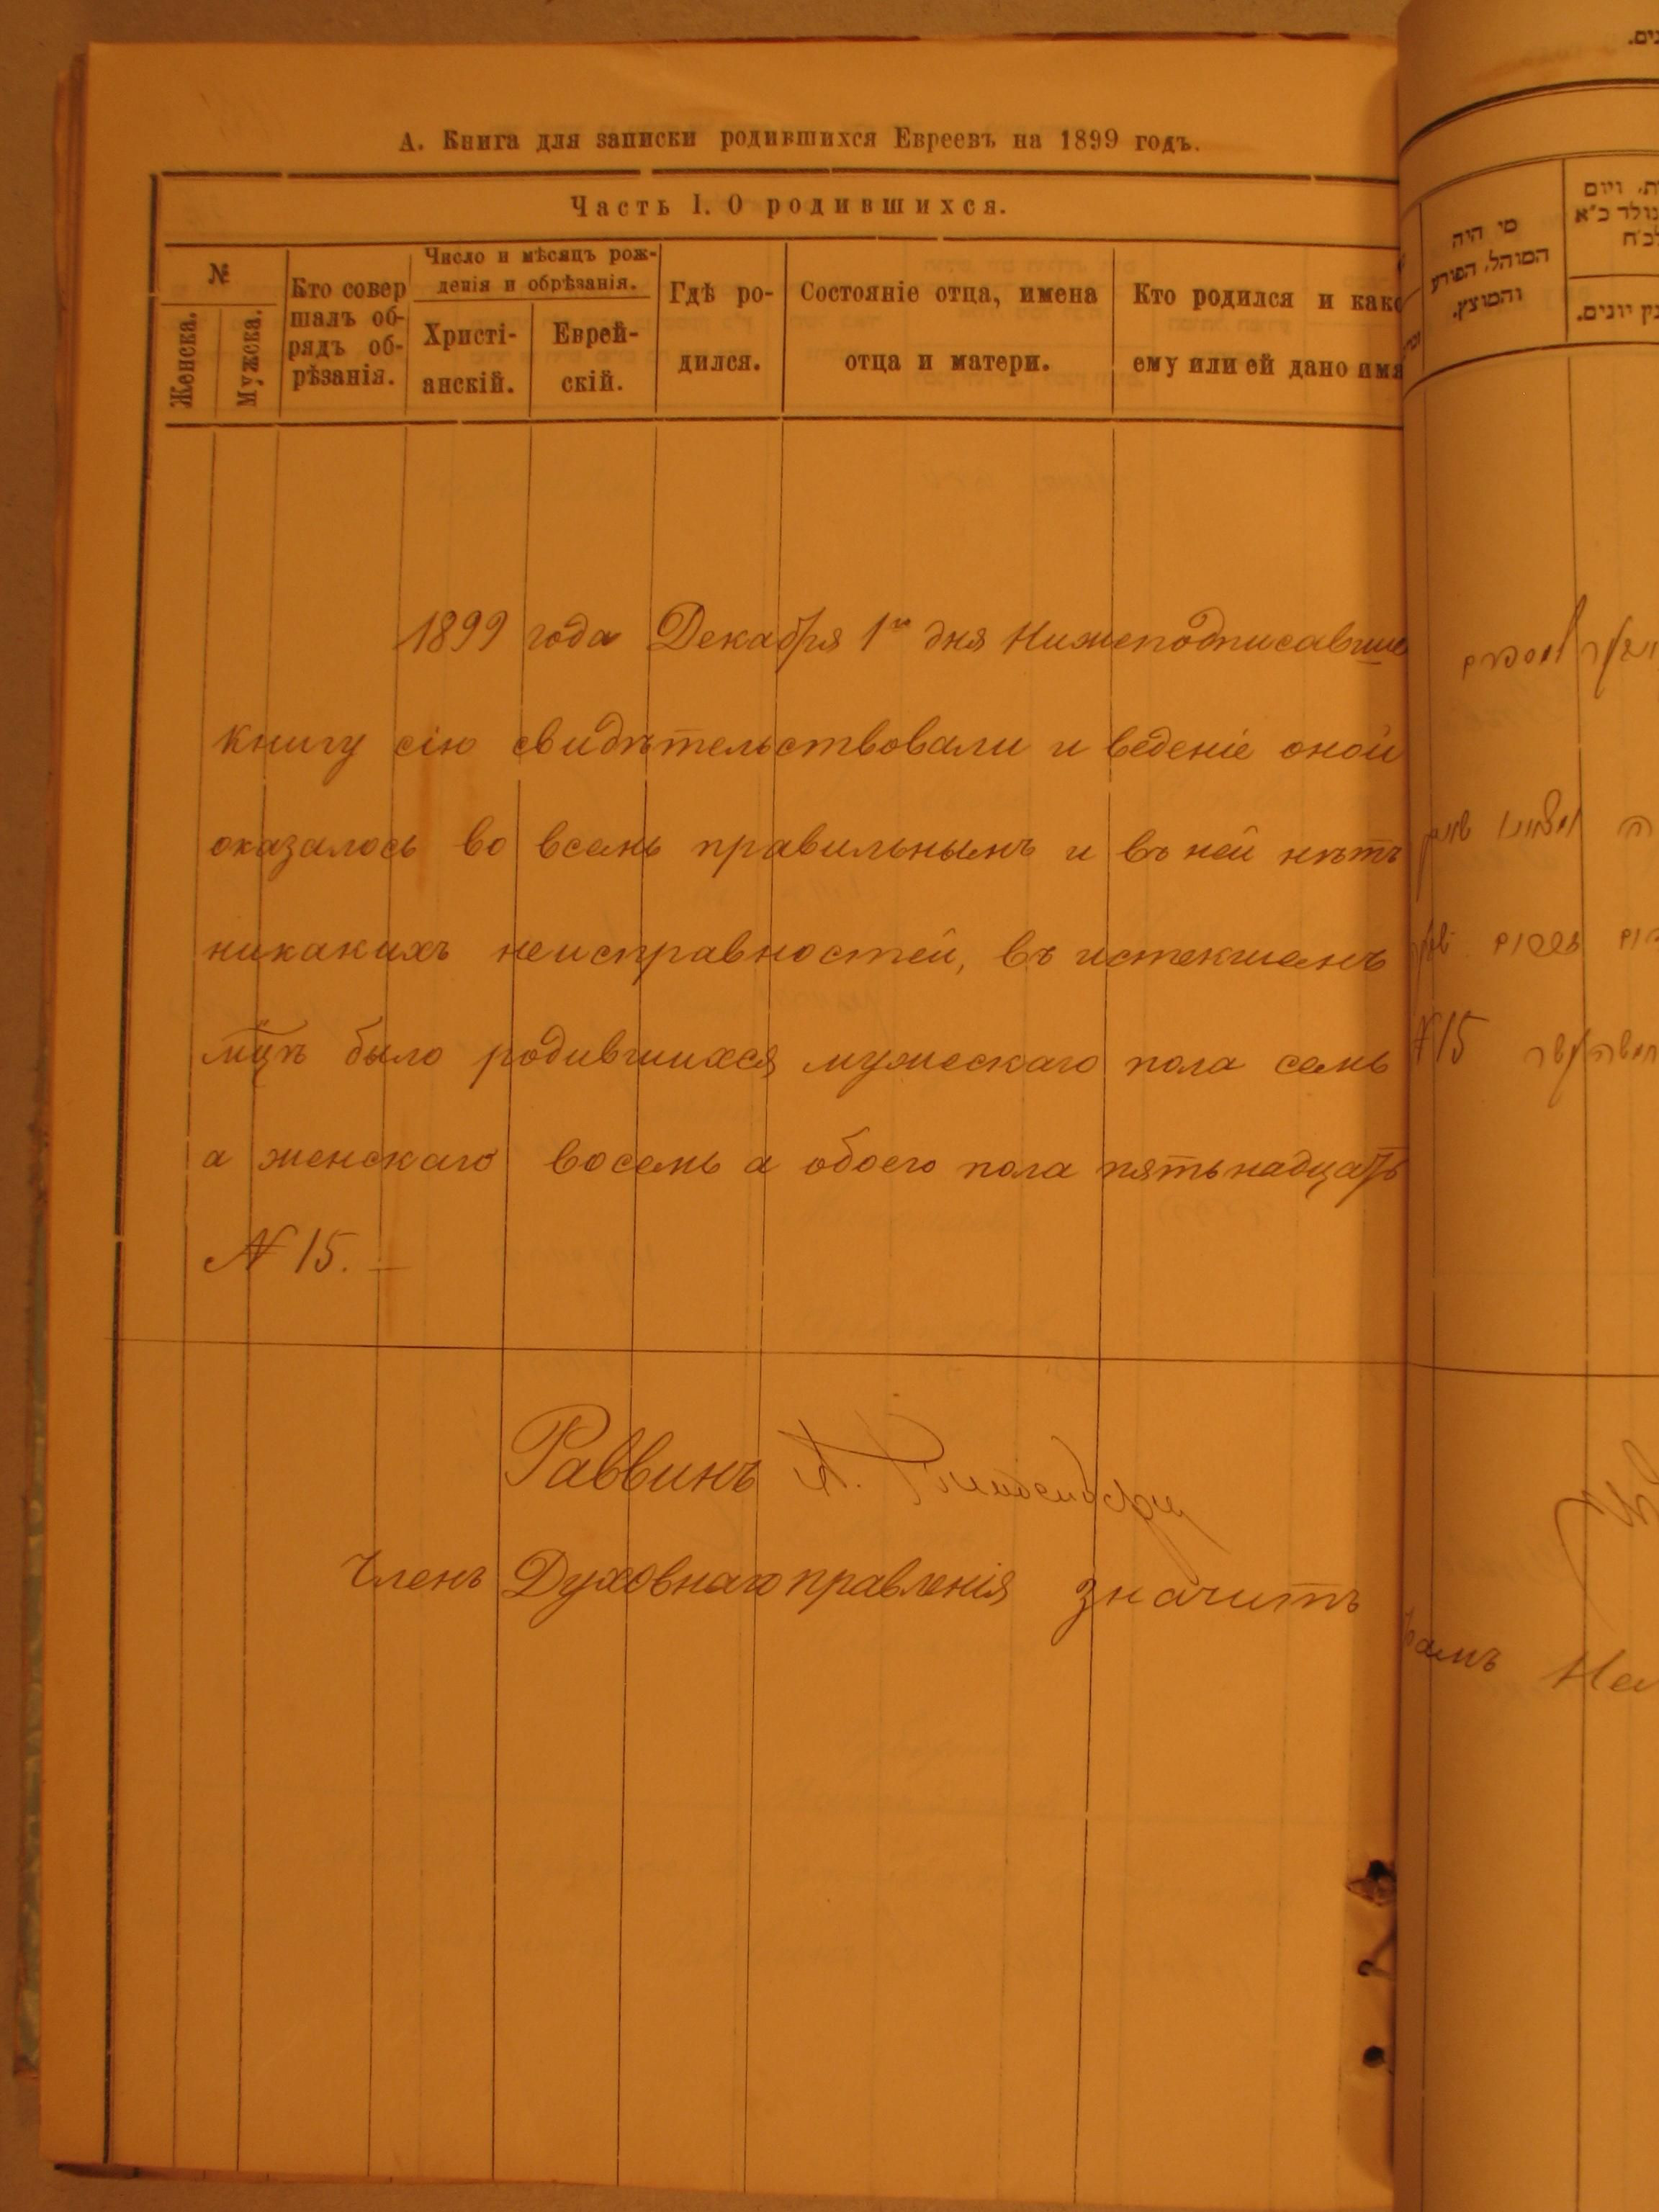 А. Книга для записки родившихся Евреевъ на 1899 годъ.
Часть I. О родившихся.
№
Женска.
Мужска.
Кто совер
шалъ об-
рядъ об-
рѣзанія.
Число и мѣсяцъ рож-
денія и обрѣзанія.
Христі-
анскій.
Еврей-
скій.
Гдѣ ро-
дился.
Состояніе отца, имена
отца и матери.
Кто родился и како
ему или ей дано имя
1899 года Декабря 1го дня Нижеподписавшие
книгу сію свидѣтельствовали и веденіе оной
оказалось во всемъ правильнымъ и въ ней нѣтъ
никакихъ неисправностей, въ истекшемъ
мцѣ было родившихся мужескаго пола семь
а женскаго восемь а обоего пола пятьнадцать
N 15.
Раввинъ А.
Членъ Духовнаго правленія значитъ
נים.
מי היה
המוהל, הפורע
והמוצץ.
ת, ויום
נולד כ"א
לכ"ח
נין יונים.
N 15